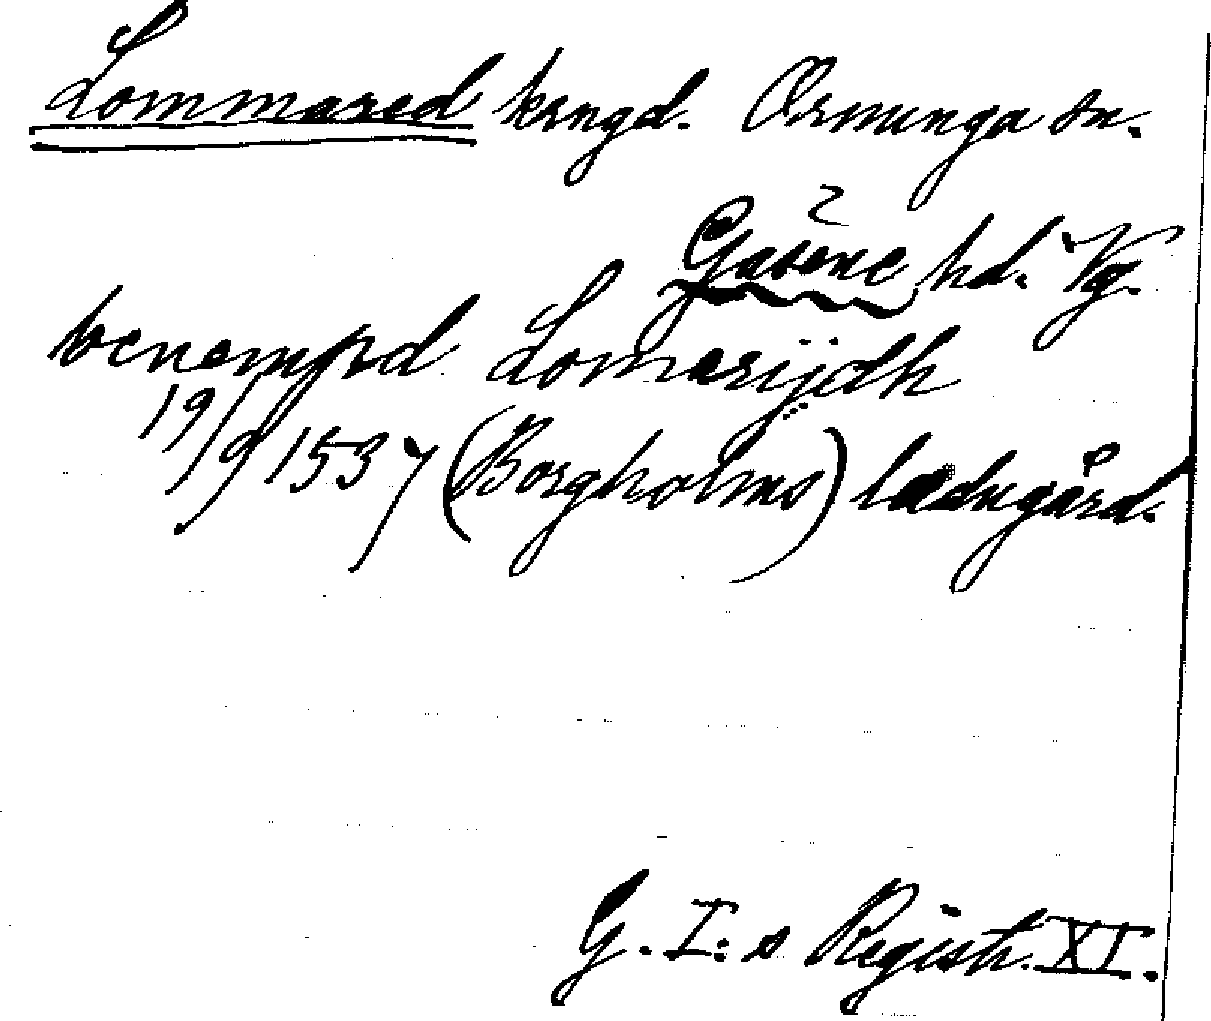 Lommared krngd. Ormunga sn.
Gäsene hd. Vg.
benempnd Lomarijdh
19/9 1537 (Borgholms) ladugård.
G. I:s Registr. XI.